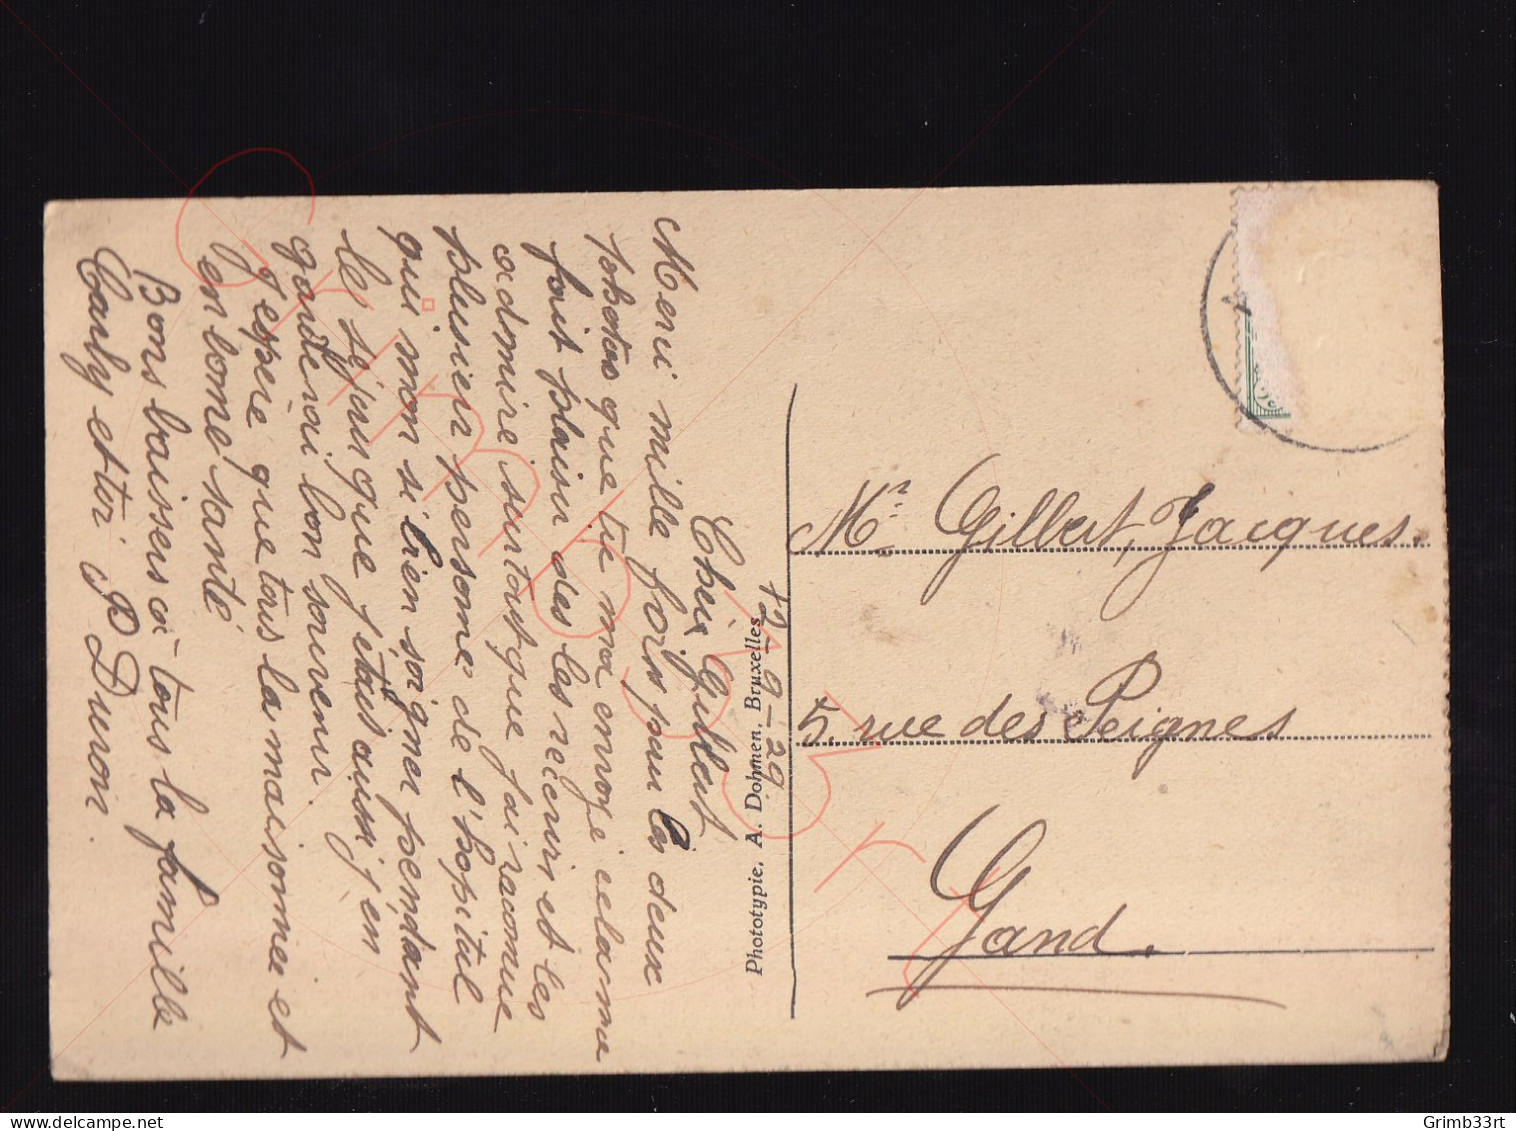 12-9-29
Cher Gilbert
Merci mille fois pour les deux
fotos que tu ma envoyé cela ma
fait plaisir des les recevir et les
admire surtout que j'ai raconue
plusieur persone de l'hopital
qui mon si bien soigner pendant
le séjour que j'etais aussi j'en
garderai bon souvenir.
J'espère que tous la maisonnée et
en bonne santé
Bons baissers à tous la famille
Carly et tol Duron.
Phototypie. A. Dohmen. Bruxelles.
Mr. Gilbert, Jacques.
5. rue des Peignes
Gand.
©Grimb33rt